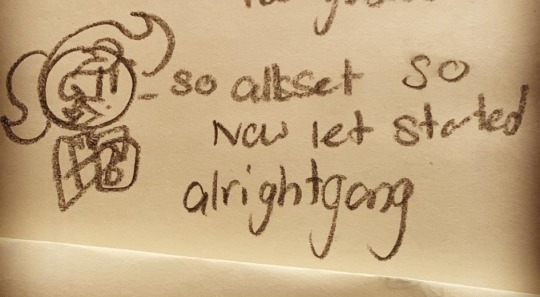 so allsset so
Now let started
alrightgang